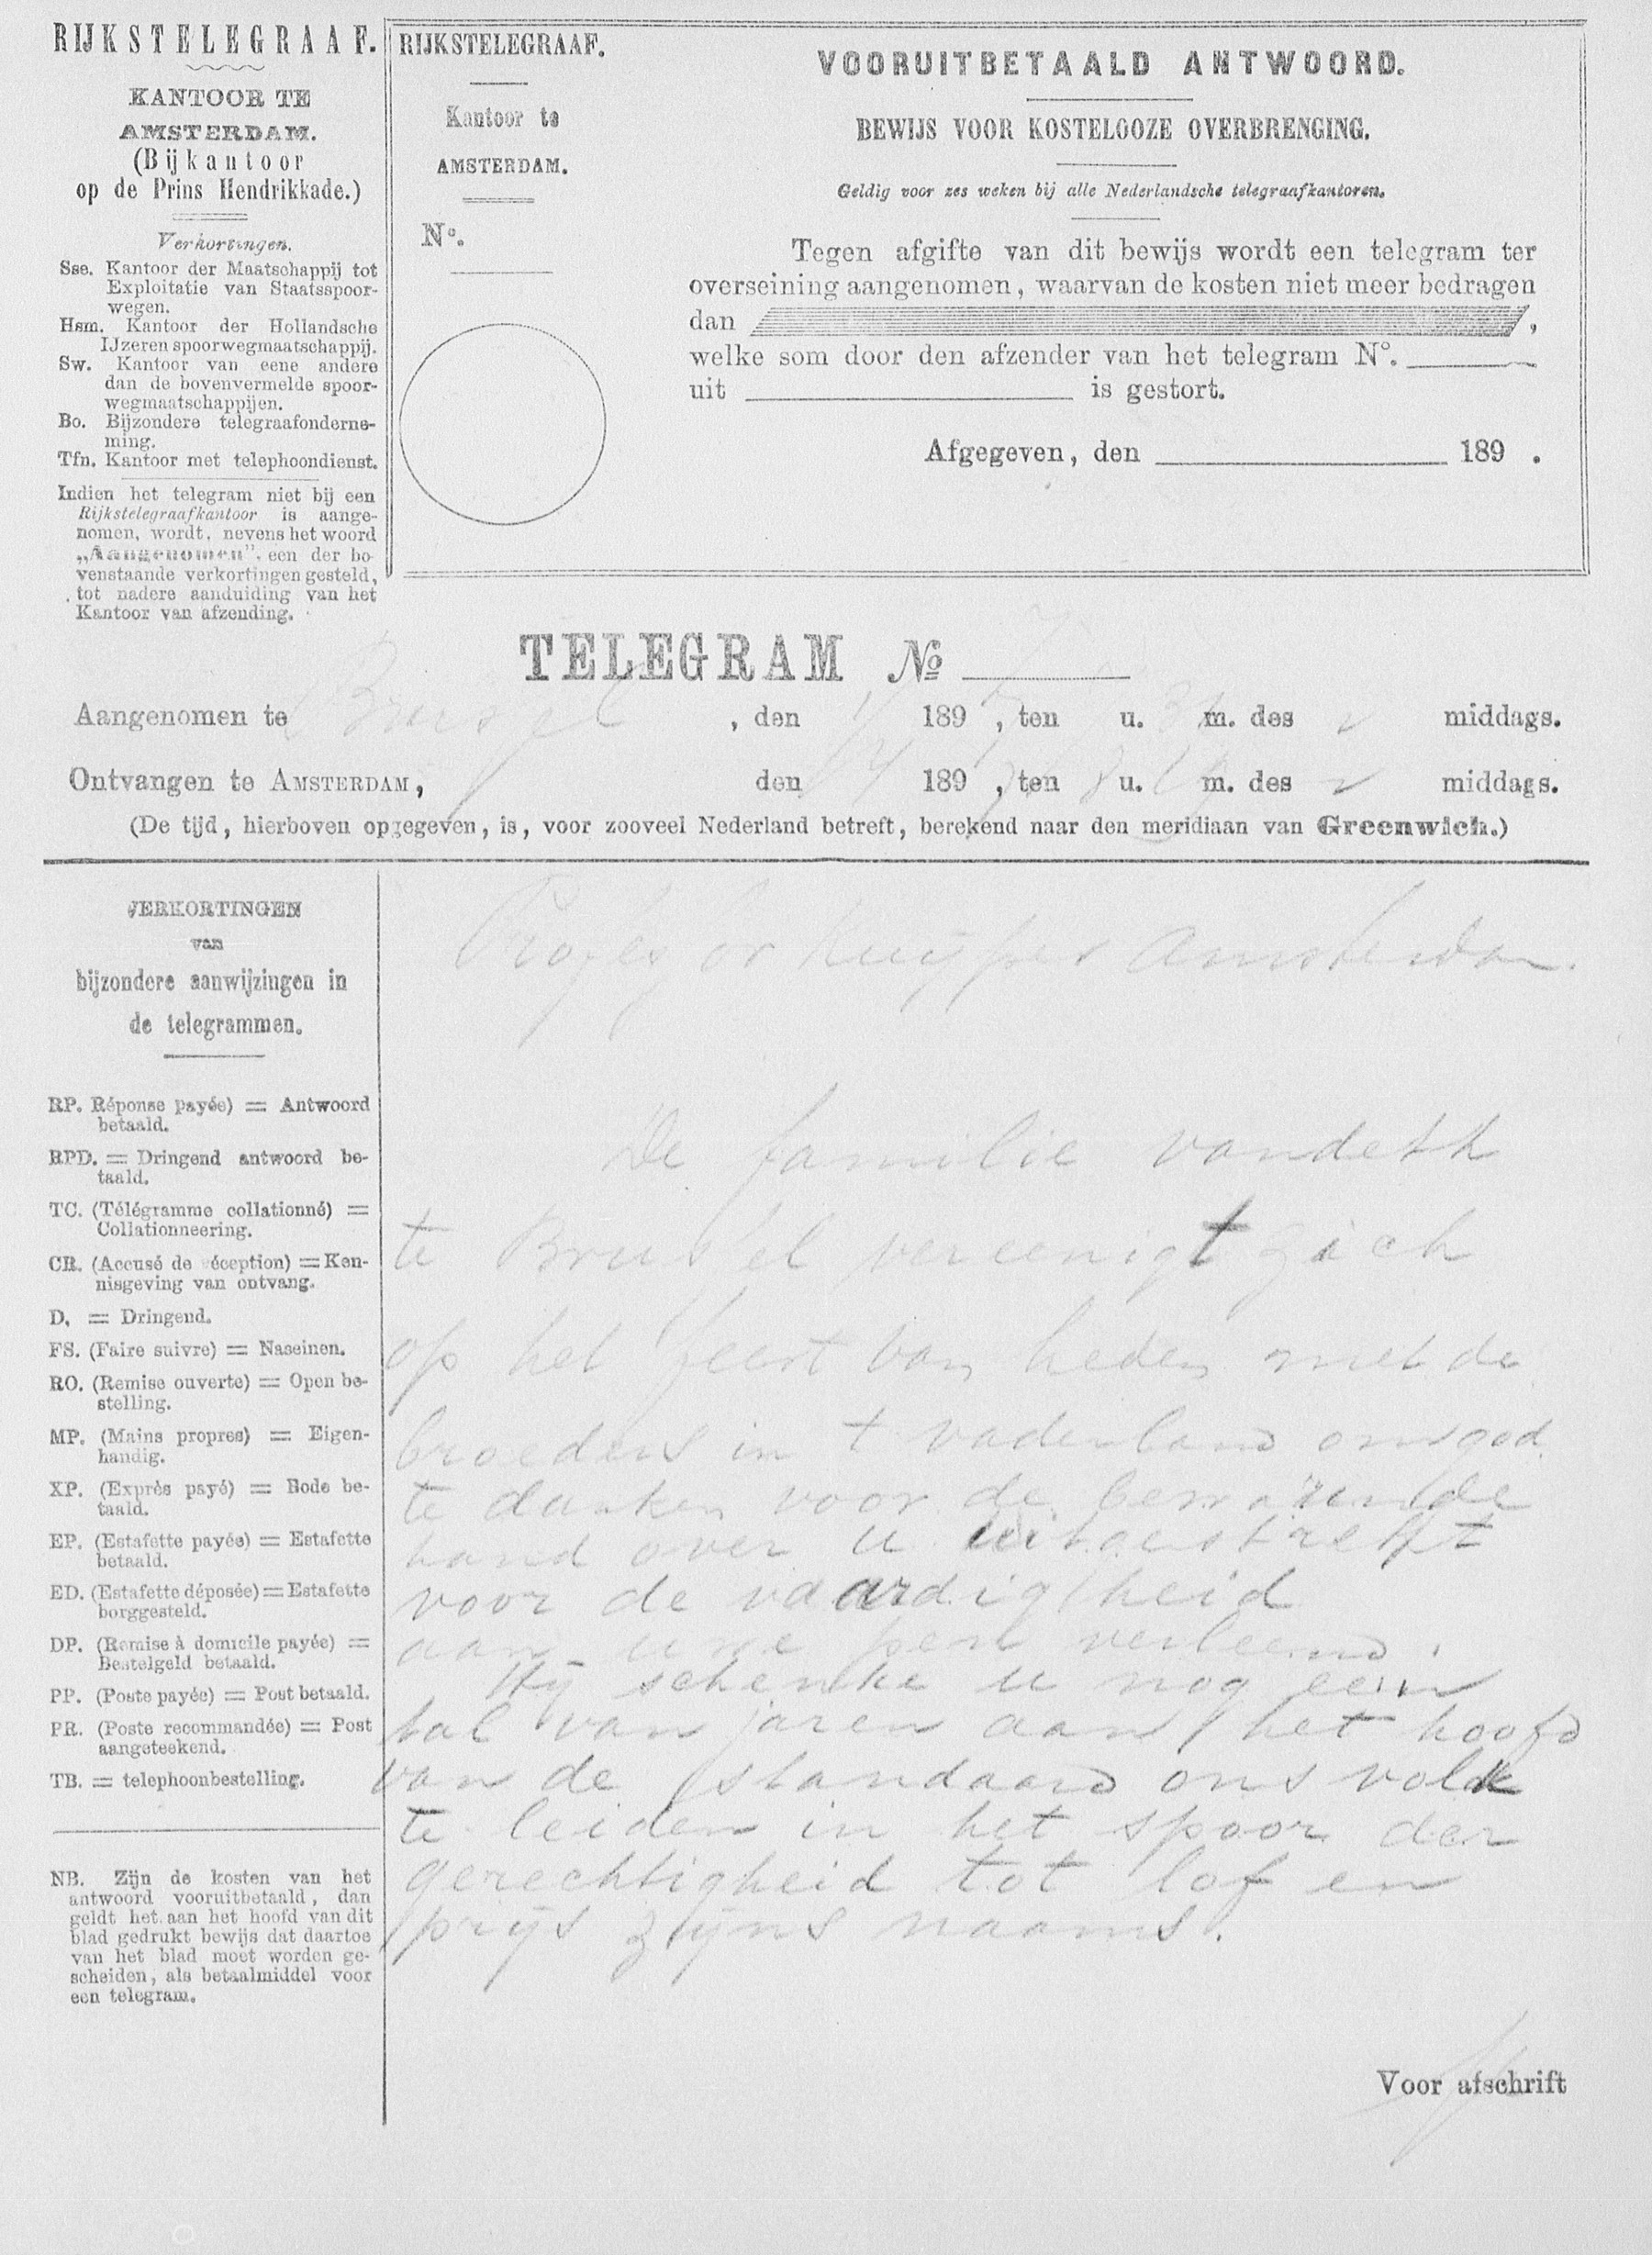 RIJKSTELEGRAAF.
KANTOOR TE
AMSTERDAM.
(Bijkantoor
op de Prins Hendrikkade.)
Verkortingen.
Sse. Kantoor der Maatschappij tot
Exploitatie van Staatsspoor-
wegen.
Hsm. Kantoor der Hollandsche
IJzeren spoorwegmaatschappij.
Sw. Kantoor van eene andere
dan de bovenvermelde spoor-
wegmaatschappijen.
Bo. Bijzondere telegraafonderne-
ming.
Tfn. Kantoor met telephoondienst.
Indien het telegram niet bij een
Rijkstelegraafkantoor is aange-
nomen, wordt, nevens het woord
„Aangenomen", een der bo-
venstaande verkortingen gesteld,
tot nadere aanduiding van het
Kantoor van afzending.
RIJKSTELEGRAAF.
Kantoor te
AMSTERDAM.
No.
VOORUITBETAALD ANTWOORD.
BEWIJS VOOR KOSTELOOZE OVERBRENGING.
Geldig voor zes weken bij alle Nederlandsche telegraafkantoren.
Tegen afgifte van dit bewijs wordt een telegram ter
overseining aangenomen, waarvan de kosten niet meer bedragen
dan ,
welke som door den afzender van het telegram No.
uit is gestort.
Afgegeven, den 189 .
TELEGRAM No
Aangenomen te Brussel, den 1/4 1897, ten u. m. des v middags.
Ontvangen te AMSTERDAM, den 1/4 1897, ten 8 u. m. des v middags.
(De tijd, hierboven opgegeven, is, voor zooveel Nederland betreft, berekend naar den meridiaan van Greenwich.)
VERKORTINGEN
van
bijzondere aanwijzingen in
de telegrammen.
RP. Réponse payée) = Antwoord
betaald.
RPD. = Dringend antwoord be-
taald.
TC. (Télégramme collationné) =
Collationneering.
CR. (Accusé de réception) = Ken-
nisgeving van ontvang.
D. = Dringend.
FS. (Faire suivre) = Naseinen.
RO. (Remise ouverte) = Open be-
stelling.
MP. (Mains propres) = Eigen-
handig.
XP. (Exprès payé) = Bode be-
taald.
EP. (Estafette payée) = Estafette
betaald.
ED. (Estafette déposée) = Estafette
borggesteld.
DP. (Remise à domicile payée) =
Bestelgeld betaald.
PP. (Poste payée) = Post betaald.
PR. (Poste recommandée) = Post
aangeteekend.
TB. = telephoonbestelling.
NB. Zijn de kosten van het
antwoord vooruitbetaald, dan
geldt het aan het hoofd van dit
blad gedrukt bewijs dat daartoe
van het blad moet worden ge-
scheiden, als betaalmiddel voor
een telegram.
Professor Kuyper Amsterdam.
De familie vandeth
te Brussel vereenigt zich
op het feest van heden met de
broeders in t vaderland om god
te danken voor de bewarende
hand over u uitgestrekt
voor de vaardigheid
aan uwe pen verleend.
Hij schenke u nog een
tal van jaren aan het hoofd
van de standaard ons volk
te leiden in het spoor der
gerechtigheid tot lof en
prijs zijns naams.
Voor afschrift